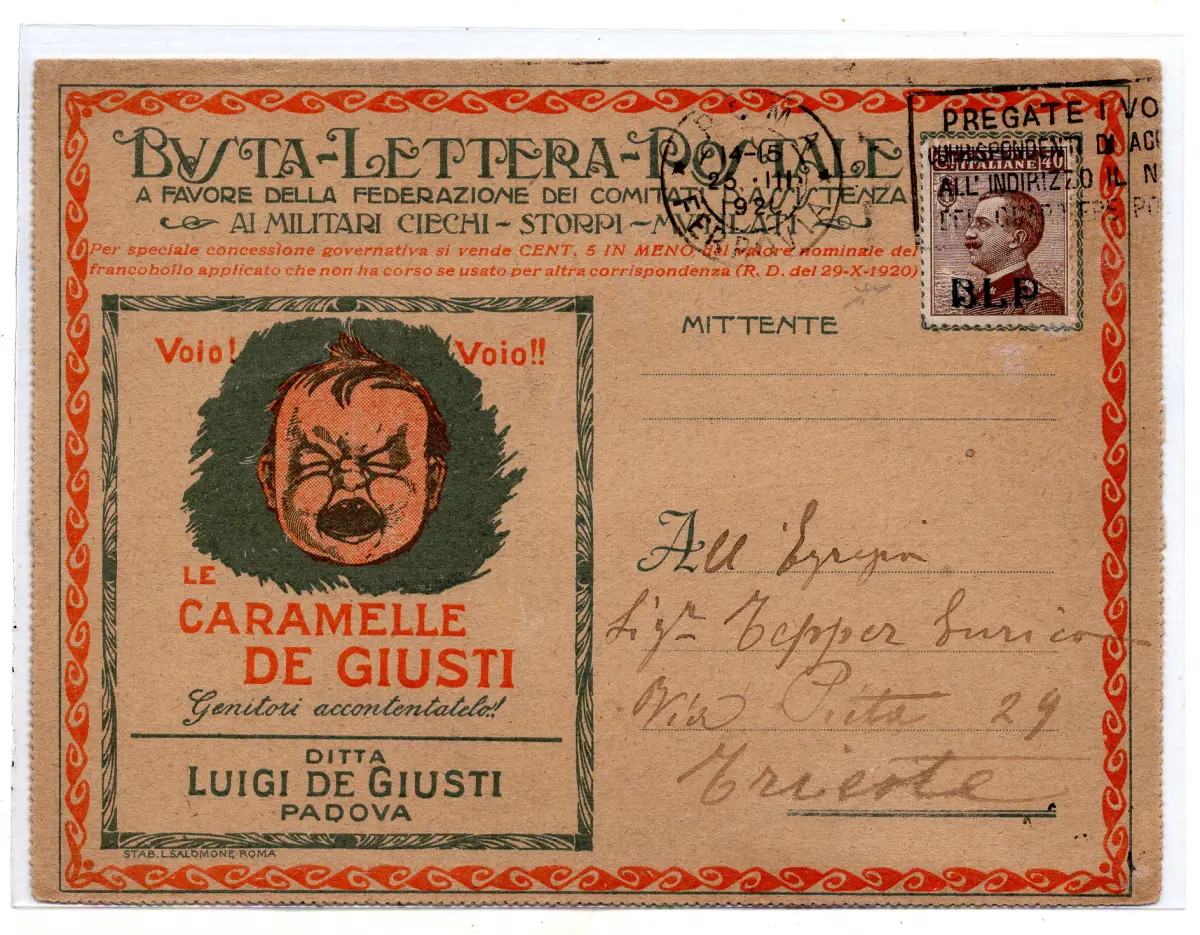 BUSTA-LETTERA-POSTALE
A FAVORE DELLA FEDERAZIONE DEI COMITATI D'ASSISTENZA
AI MILITARI CIECHI - STORPI - MUTILATI
Per speciale concessione governativa si vende CENT. 5 IN MENO del valore nominale del
francobollo applicato che non ha corso se usato per altra corrispondenza (R. D. del 29-X-1920)
ROMA
14-15
25 . III
192
FERROVIA
PREGATE I VO
CORRISPONDENTI DI AG
ALL' INDIRIZZO IL N
POSTE ITALIANE 40
BLP
MITTENTE
Voio! Voio!!
LE
CARAMELLE
DE GIUSTI
Genitori accontentatelo!!
DITTA
LUIGI DE GIUSTI
PADOVA
STAB. L. SALOMONE ROMA
All' Egregio
Sigr Tepper Enrico
Via Pieta 29
Trieste